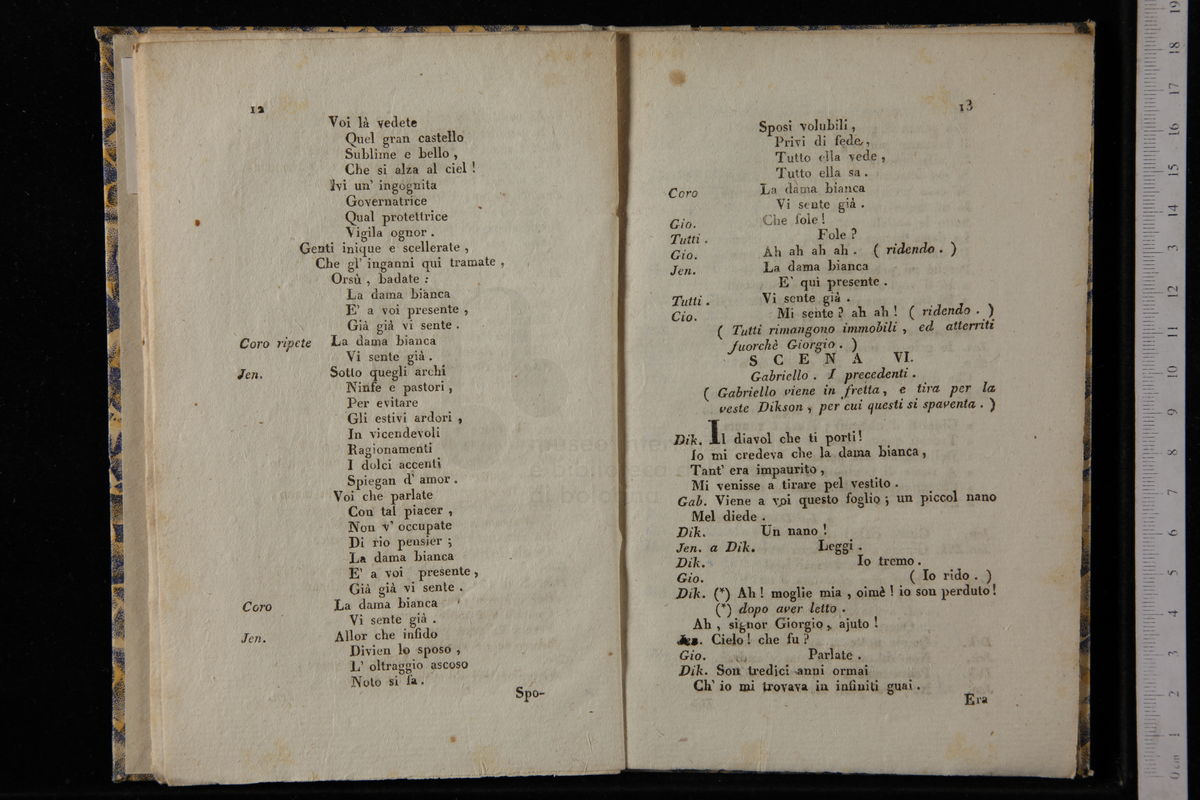 12
Voi là vedete
Quel gran castello
Sublime e bello ,
Che si alza al ciel !
Ivi un' ingognita
Governatrice
Qual protettrice
Vigila ognor .
Genti inique e scellerate ,
Che gl' inganni qui tramate ,
Orsù , badate :
La dama bianca
E' a voi presente ,
Già già vi sente .
Coro ripete La dama bianca
Vi sente già .
Jen. Sotto quegli archi
Ninfe e pastori ,
Per evitare
Gli estivi ardori ,
In vicendevoli
Ragionamenti
I dolci accenti
Spiegan d' amor .
Voi che parlate
Con tal piacer ,
Non v' occupate
Di rio pensier ;
La dama bianca
E' a voi presente ,
Già già vi sente .
Coro La dama bianca
Vi sente già .
Jen. Allor che infido
Divien lo sposo ,
L' oltraggio ascoso
Noto si fa .
Spo-
13
Sposi volubili ,
Privi di fede ,
Tutto ella vede ,
Tutto ella sa .
Coro La dama bianca
Vi sente già .
Gio. Che fole !
Tutti . Fole ?
Gio. Ah ah ah ah . ( ridendo . )
Jen. La dama bianca
E' qui presente .
Tutti . Vi sente già .
Cio. Mi sente ? ah ah ! ( ridendo . )
( Tutti rimangono immobili , ed atterriti
fuorchè Giorgio . )
S C E N A VI.
Gabriello . I precedenti .
( Gabriello viene in fretta , e tira per la
veste Dikson , per cui questi si spaventa . )
Dik. Il diavol che ti porti !
Io mi credeva che la dama bianca ,
Tant' era impaurito ,
Mi venisse a tirare pel vestito .
Gab. Viene a voi questo foglio ; un piccol nano
Mel diede .
Dik. Un nano !
Jen. a Dik. Leggi .
Dik. Io tremo .
Gio. ( Io rido . )
Dik. (*) Ah ! moglie mia , oimè ! io son perduto !
(*) dopo aver letto .
Ah , signor Giorgio , ajuto !
Jen. Cielo ! che fu ?
Gio. Parlate .
Dik. Son tredici anni ormai
Ch' io mi trovava in infiniti guai .
Era